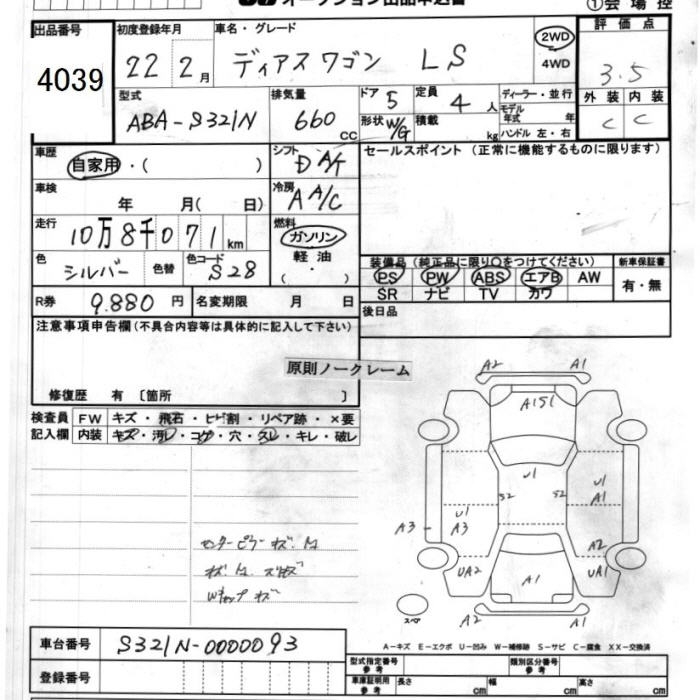 オークション出品申込書
①会場控
出品番号
4039
初度登録年月
22年2月
車名・グレード
ディアスワゴン LS
2WD
4WD
評価点
3.5
外装 内装
C C
型式
ABA-S321N
排気量
660 CC
ドア 5
形状 W/G
定員 4 人
積載 kg
ディーラー・並行
モデル年式 年
ハンドル 左・右
車歴
自家用・( )
シフト
DAT
セールスポイント(正常に機能するものに限ります)
車検
年 月( 日)
冷房
AA/C
走行
10万8千071km
燃料
ガソリン
軽油
( ・ )
色
シルバー
色替
色コード
S28
装備品(純正品に限り○をつけてください)
PS PW ABS エアB AW
SR ナビ TV カワ
新車保証書
有・無
R券 9.880 円
名変期限 月 日
後日品
注意事項申告欄(不具合内容等は具体的に記入して下さい)
原則ノークレーム
修復歴 有 〔箇所 〕
検査員記入欄
FW キズ・飛石・ヒビ割・リペア跡・×要
内装 キズ・汚レ・コゲ・穴・スレ・キレ・破レ
センターピラー キズ.
Wキャップ キズ
A2 A1
A1S1
U1
S2 S2
U1
A1
A3
U1
A3
A2
UA2
A1
UA1
スペア
A2 A1
A－キズ E－エクボ U－凹み W－補修跡 S－サビ C－腐食 XX－交換済
車台番号
S321N-0000093
登録番号
型式指定番号
参考
類別区分番号
参考
車庫証明用
参考
長さ cm 幅 cm 高さ cm